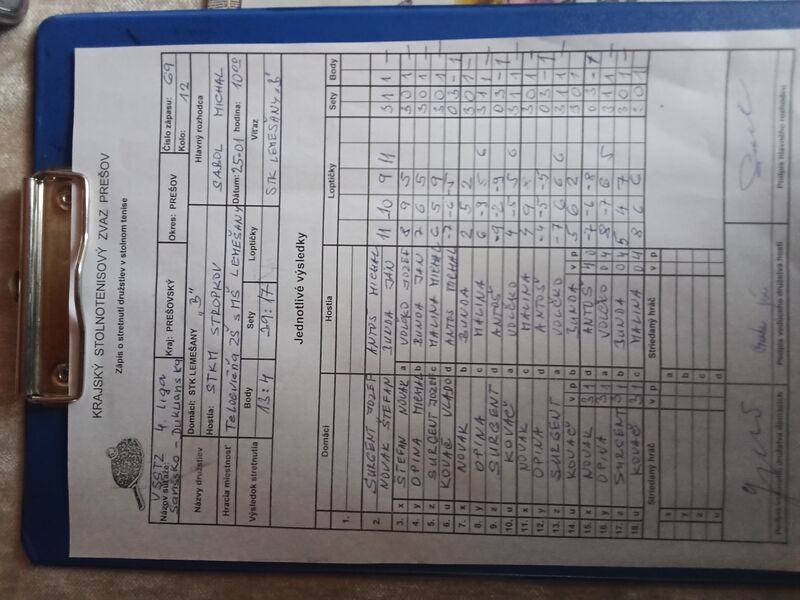 KRAJSKÝ STOLNOTENISOVÝ ZVAZ PREŠOV
Zápis o stretnutí družstiev v stolnom tenise
VSSTZ 4. LIGA
Názov súťaže: Kraj: PREŠOVSKÝ Okres: PREŠOV Číslo zápasu: 69
Kolo: 12
Názvy družstiev Domáci: STK LEMEŠANY "B" Hlavný rozhodca
Hostia: STKM STROPKOV SABOL MICHAL
Hracia miestnosť ZŠ s MŠ LEMEŠANY Dátum: 25.01 hodina: 10°°
Výsledok stretnutia Body Sety Loptičky Víťaz
13:4 STK LEMEŠANY „B"
Jednotlivé výsledky
Domáci Hostia Loptičky Sety Body
1.
2. SURGENT JOZEF ANTOŠ MICHAL
NOVAK ŠTEFAN BUNDA JAN 11 10 9 11 3 1 1 –
3. x ŠTEFAN NOVAK a VOLČKO JOZEF 8 9 5 3 0 1 –
4. y OPINA MICHAL b BUNDA JAN 7 6 5 3 0 1 –
5. z SURGENT JOZEF c MALINA MICHAL 6 5 9 3 0 1 –
6. u KOVAČ VLADO d ANTOŠ MICHAL 0 3 – 1
7. x NOVAK b BUNDA 2 5 2 3 0 1 –
8. y OPINA c MALINA 6 3 1 1 –
9. z SURGENT d ANTOŠ 0 3 – 1
10. u KOVAČ a VOLČKO 4 -5 5 6 3 1 1 –
11. x NOVAK c MALINA 3 0 1 –
12. y OPINA d ANTOŠ -4 -5 -5 0 3 – 1
13. z SURGENT a VOLČKO -7 6 6 6 3 1 1 –
14. u KOVAČ v p b BUNDA v p 5 6 2 3 0 1 –
15. x NOVAK 3 1 d ANTOŠ -7 -6 -8 0 3 – 1
16. y OPINA 3 1 a VOLČKO 0 4 8 -7 6 5 3 1 1 –
17. z SURGENT 3 1 b BUNDA 0 4 5 4 7 3 0 1 –
18. u KOVAČ 3 1 c MALINA 0 4 8 6 6
Striedaný hráč v p Striedaný hráč v p
x a
y b
z c
u d
Podpis vedúceho družstva domácich Podpis vedúceho družstva hostí Podpis hlavného rozhodcu